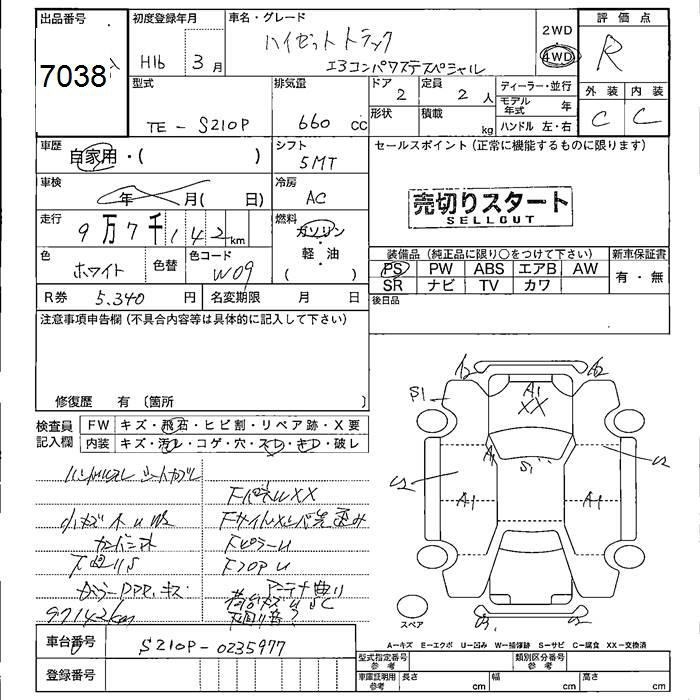 出品番号
7038
初度登録年月
H16 3月
車名・グレード
ハイゼットトラック
エアコンパワステスペシャル
2WD
4WD
評価点
R
外装 内装
C C
型式
TE-S210P
排気量
660 cc
ドア
2
定員
2 人
形状
積載
kg
ディーラー・並行
モデル年式 年
ハンドル 左・右
車歴
自家用・( )
シフト
5MT
セールスポイント (正常に機能するものに限ります)
売切りスタート
SELLOUT
車検
年 月( 日)
冷房
AC
走行
9万7千142km
燃料
ガソリン
・
軽・油
( )
色
ホワイト
色替
色コード
W09
装備品 (純正品に限り○をつけて下さい)
新車保証書
PS PW ABS エアB AW
SR ナビ TV カワ
有・無
R券 5.340 円
名変期限 月 日
後日品
注意事項申告欄 (不具合内容等は具体的に記入して下さい)
修復歴 有 〔箇所 〕
検査員
記入欄
FW キズ・飛石・ヒビ割・リペア跡・X要
内装 キズ・汚レ・コゲ・穴・スレ・キレ・破レ
ハンドルスレ シートカブレ
小キズ
97142km
S1
A1
XX
A
S1
U2
U2
A1
A1
スペア
A－キズ E－エクボ U－凹み W－補修跡 S－サビ C－腐食 XX－交換済
車台番号
S210P-0235977
登録番号
型式指定番号
参考
類別区分番号
参考
車庫証明用
参考
長さ cm
幅 cm
高さ cm